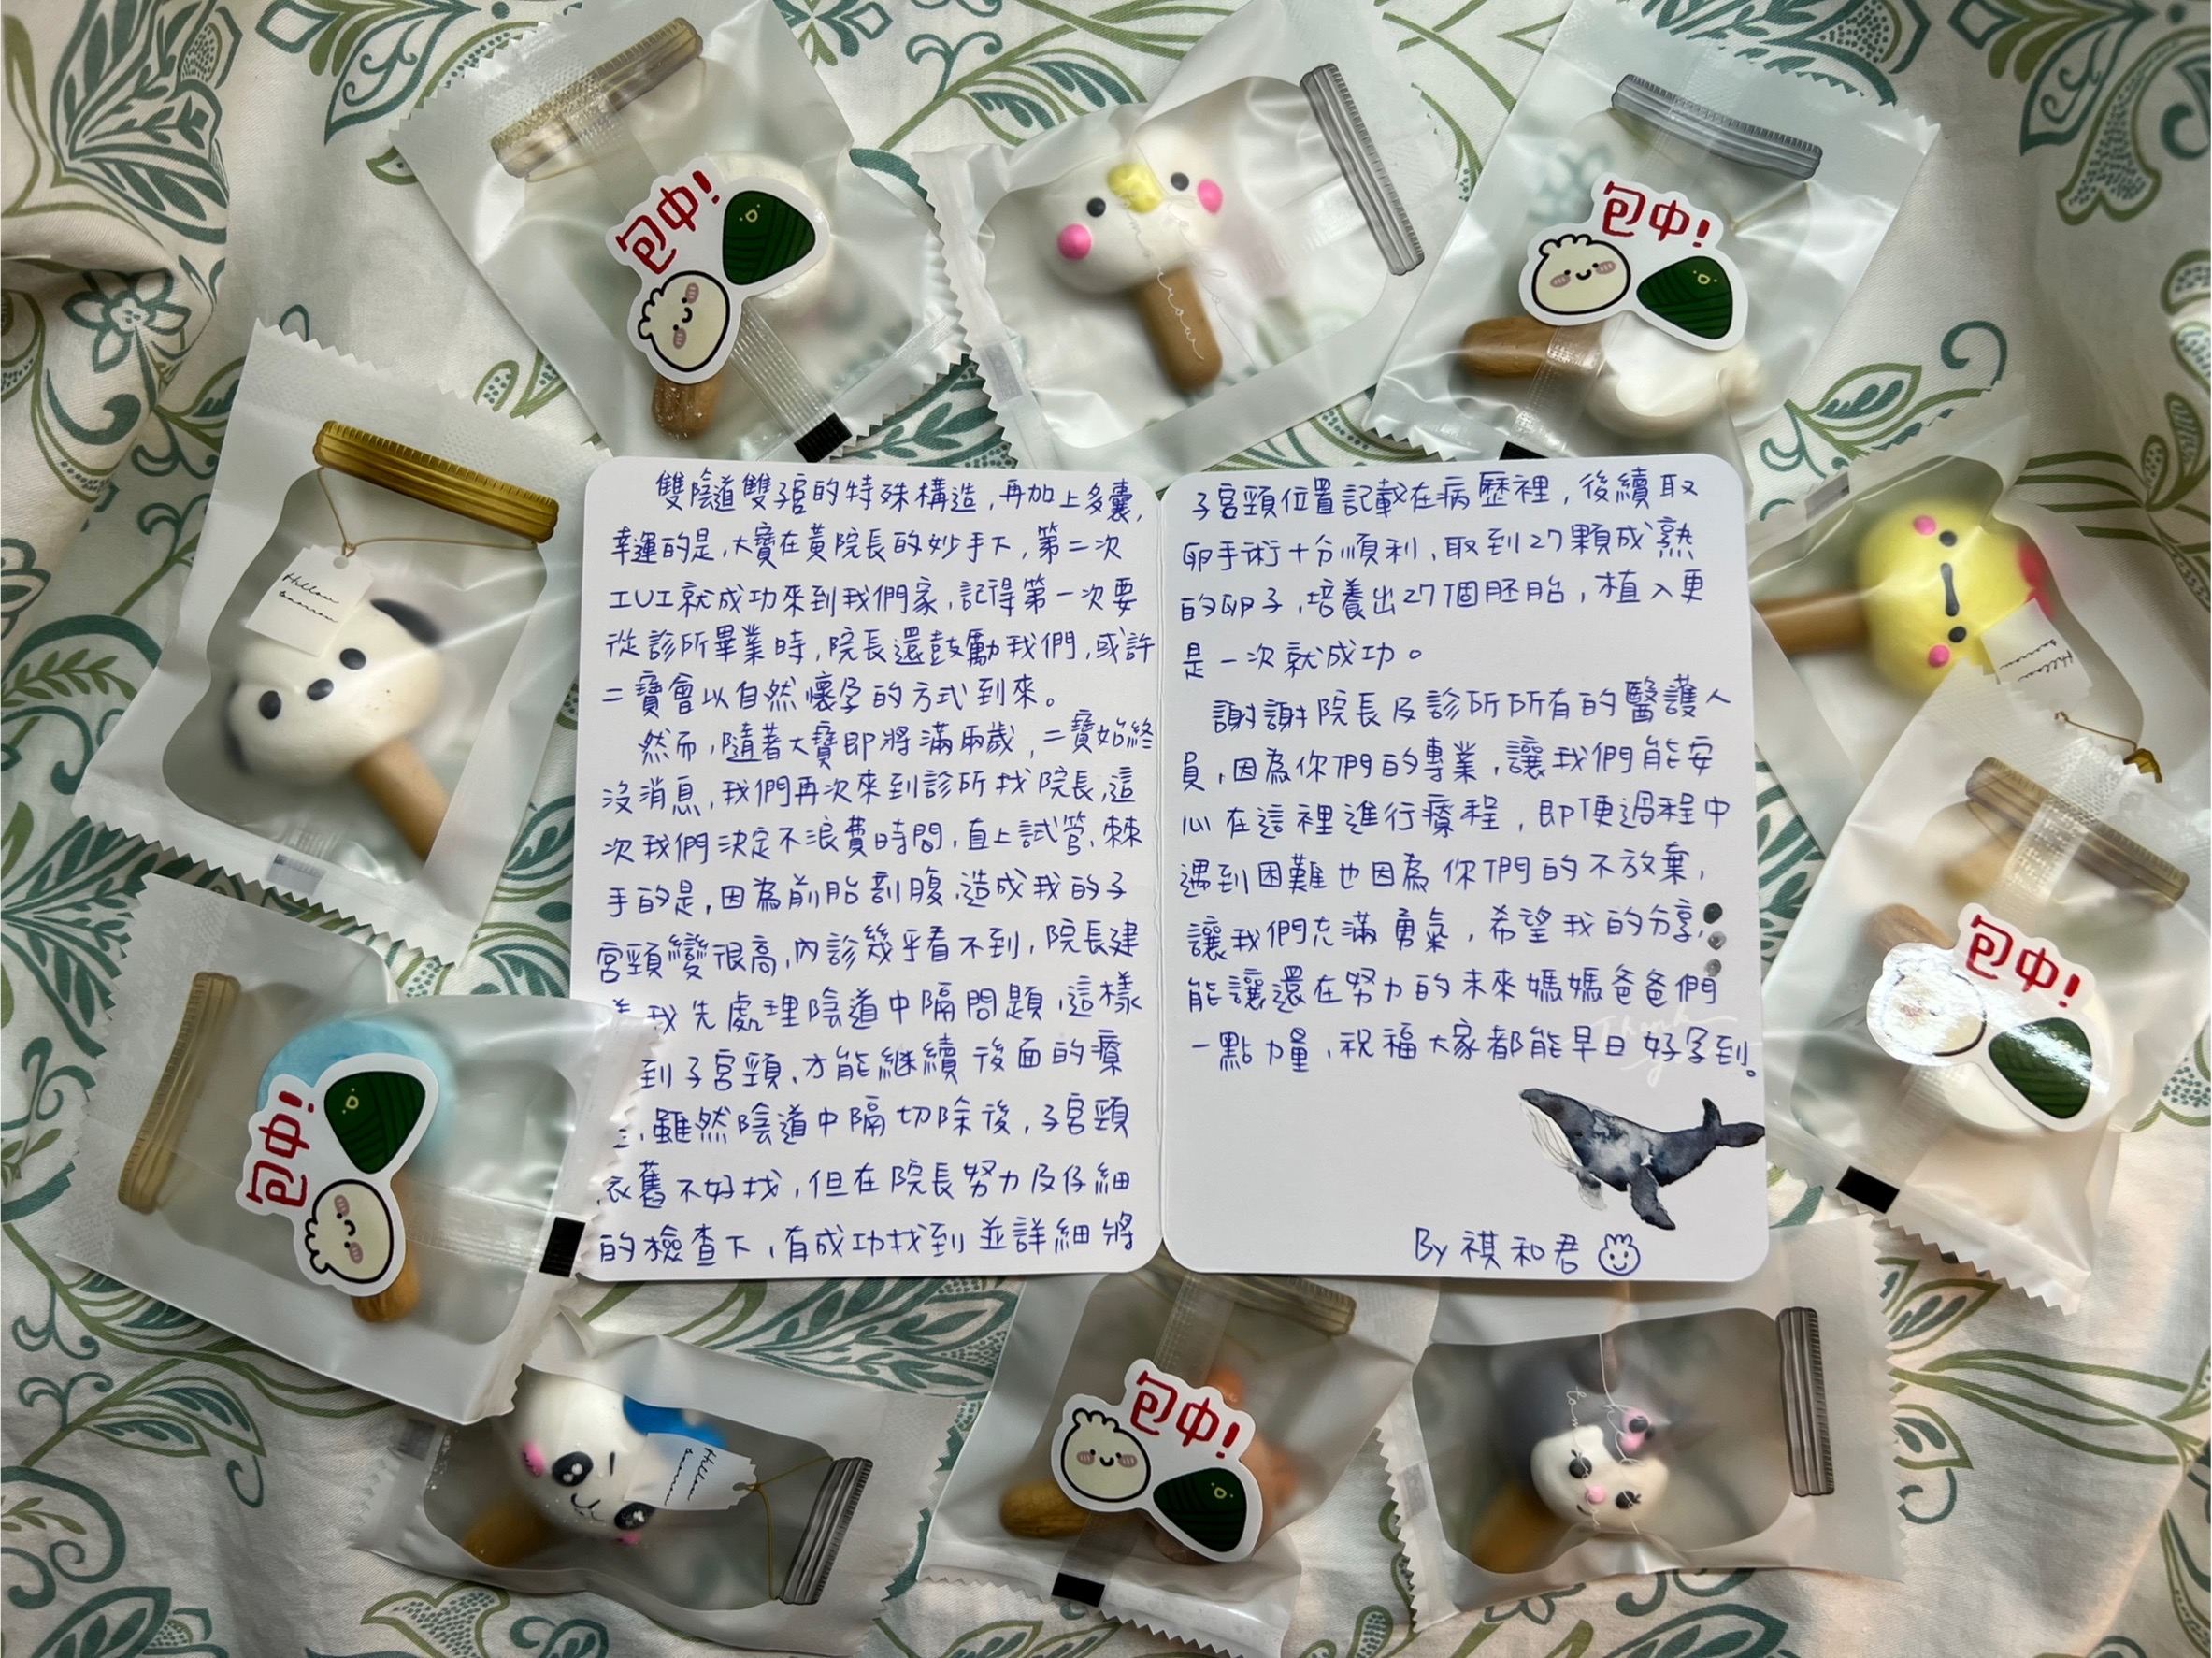 包中!
包中!
Hellow
tomorrow
雙陰道雙子宮的特殊構造,再加上多囊,
幸運的是,大寶在黃院長的妙手下,第二次
IUI就成功來到我們家,記得第一次要
從診所畢業時,院長還鼓勵我們,或許
二寶會以自然懷孕的方式到來。
然而,隨著大寶即將滿兩歲,二寶始終
沒消息,我們再次來到診所找院長,這
次我們決定不浪費時間,直上試管,棘
手的是,因為前胎剖腹,造成我的子
宮頸變很高,內診幾乎看不到,院長建
我先處理陰道中隔問題,這樣
到子宮頸,才能繼續後面的療
,雖然陰道中隔切除後,子宮頸
依舊不好找,但在院長努力及仔細
的檢查下,有成功找到並詳細將
子宮頸位置記載在病歷裡,後續取
卵手術十分順利,取到27顆成熟
的卵子,培養出27個胚胎,植入更
是一次就成功。
謝謝院長及診所所有的醫護人
員,因為你們的專業,讓我們能安
心在這裡進行療程,即便過程中
遇到困難也因為你們的不放棄,
讓我們充滿勇氣,希望我的分享,
能讓還在努力的未來媽媽爸爸們
一點力量,祝福大家都能早日好孕到。
By 祺和君
包中!
包中!
包中!